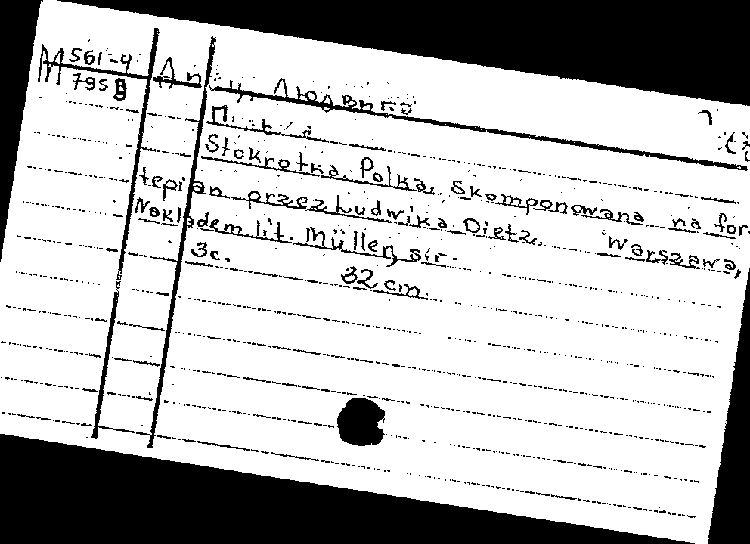 М 561-4
795 В
Людвика
Stokrotka. Polka, skomponowana na for-
tepian przez Ludwika Dietz. Warszawa,
Nakładem lit. Müller, sir.
3с.
32 cm.